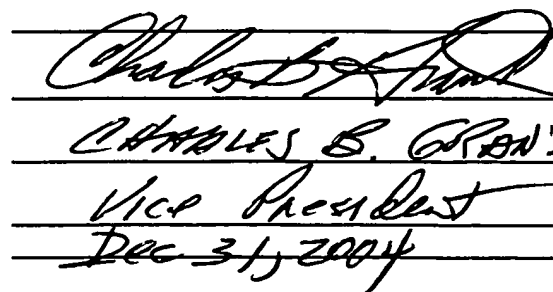 Charles B Grant
CHARLES B. GRANT
Vice President
Dec 31, 2004